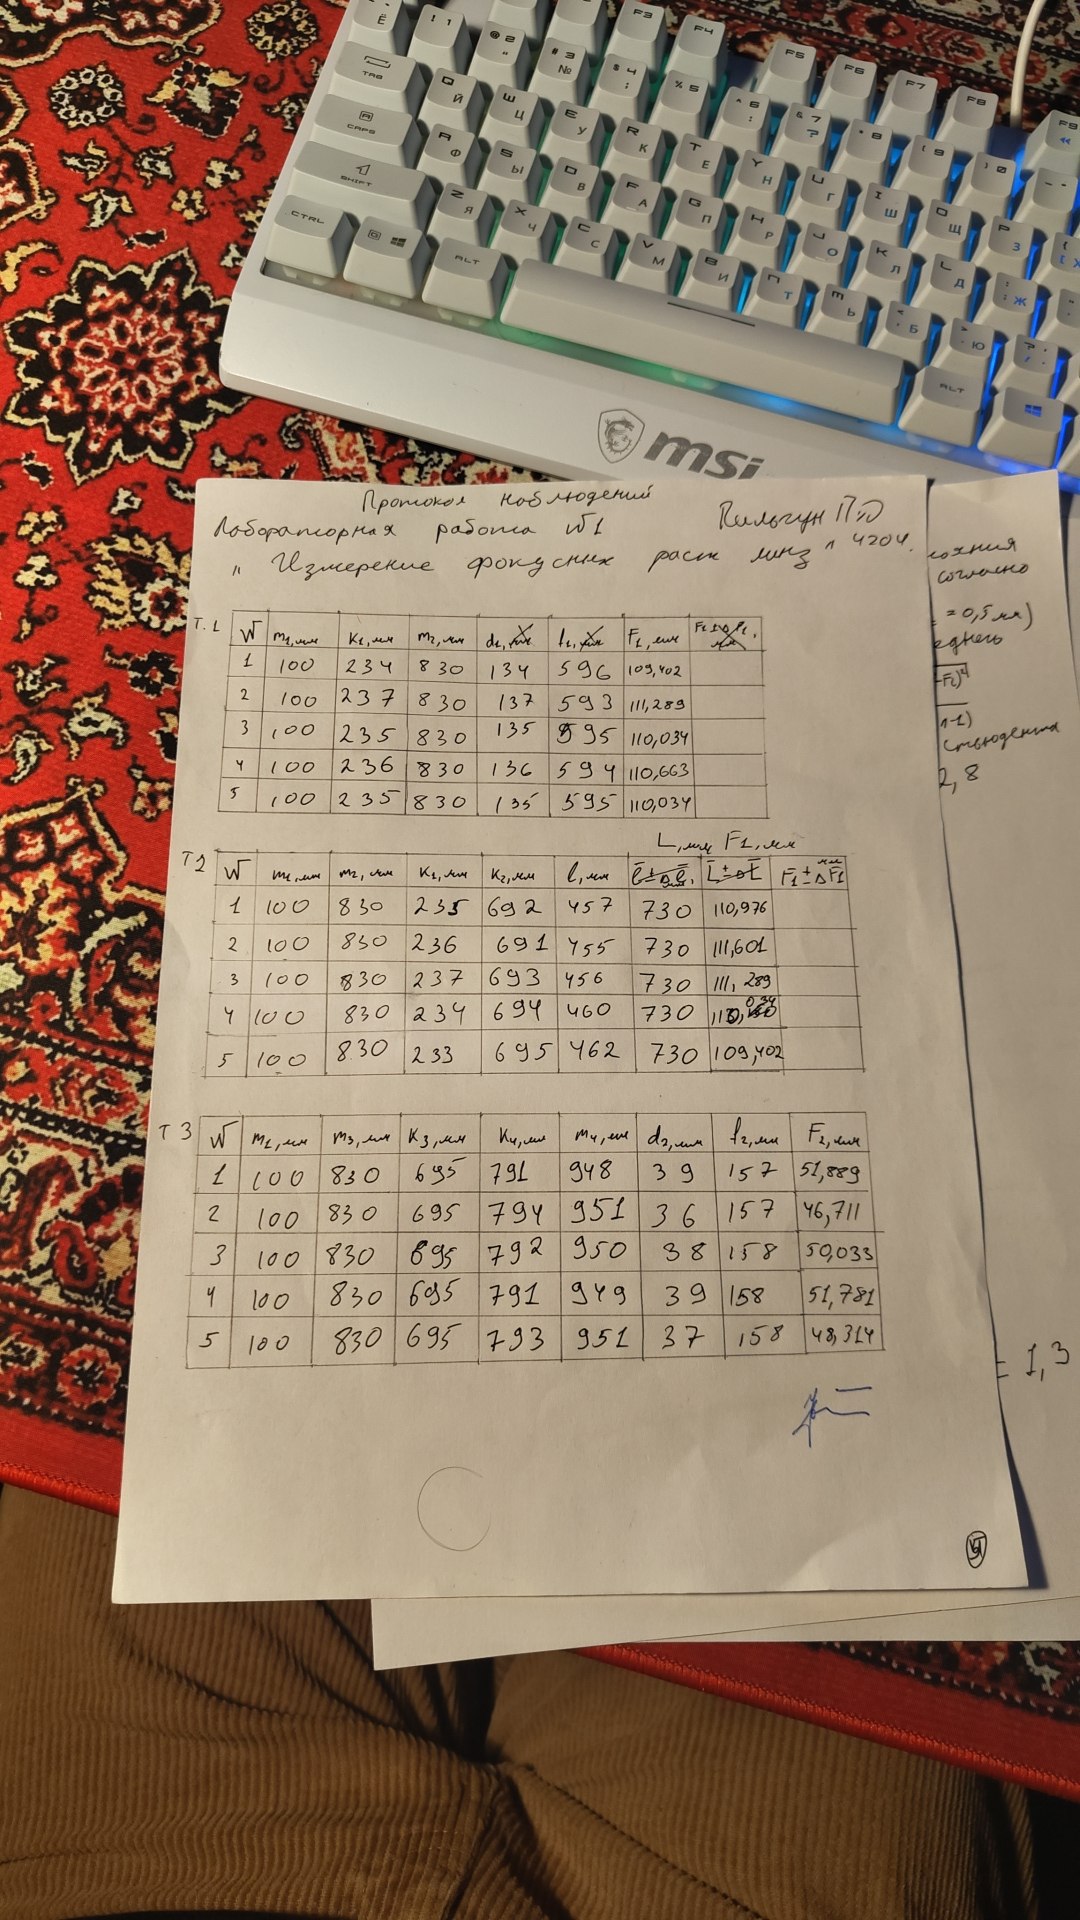 Протокол наблюдений
Лабораторная работа №1
"Измерение фокусных расст линз" 4204.
Т.1
№ m1,мм K1,мм m2,мм d1,мм f1,мм F1,мм
1 100 234 830 134 596 109,402
2 100 237 830 137 593 111,289
3 100 235 830 135 595 110,034
4 100 236 830 136 594 110,663
5 100 235 830 135 595 110,034
L,мм F1,мм
Т2
№ m1,мм m2,мм K1,мм K2,мм l,мм F1±ΔF1 мм
1 100 830 235 692 457 730 110,976
2 100 830 236 691 455 730 111,601
3 100 830 237 693 456 730 111,289
4 100 830 234 694 460 730 110,034
5 100 830 233 695 462 730 109,402
Т 3
№ m1,мм m3,мм K3,мм K4,мм m4,мм d2,мм f2,мм F2,мм
1 100 830 695 791 948 39 157 51,889
2 100 830 695 794 951 36 157 46,711
3 100 830 695 792 950 38 158 50,033
4 100 830 695 791 949 39 158 51,781
5 100 830 695 793 951 37 158 48,314
согласно
= 0,5 мм)
-F2)²
n-1)
Стьюдента
2,8
= 1,3
msi
TAB
CAPS
SHIFT
CTRL
ALT
ALT
F3 F4 F5 F6 F7 F8 F9